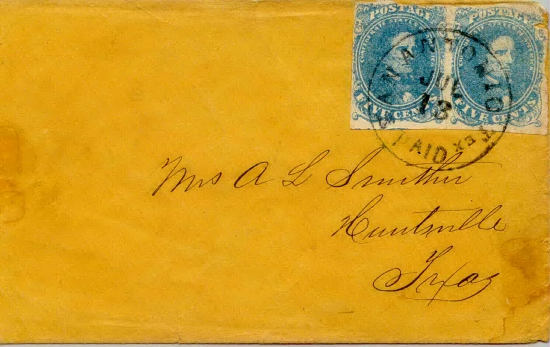 POSTAGE POSTAGE
FIVE CENTS FIVE CENTS
SAN ANTONIO TEX
JUL
13
PAID
Mrs A L Smither
Huntsville
Texas